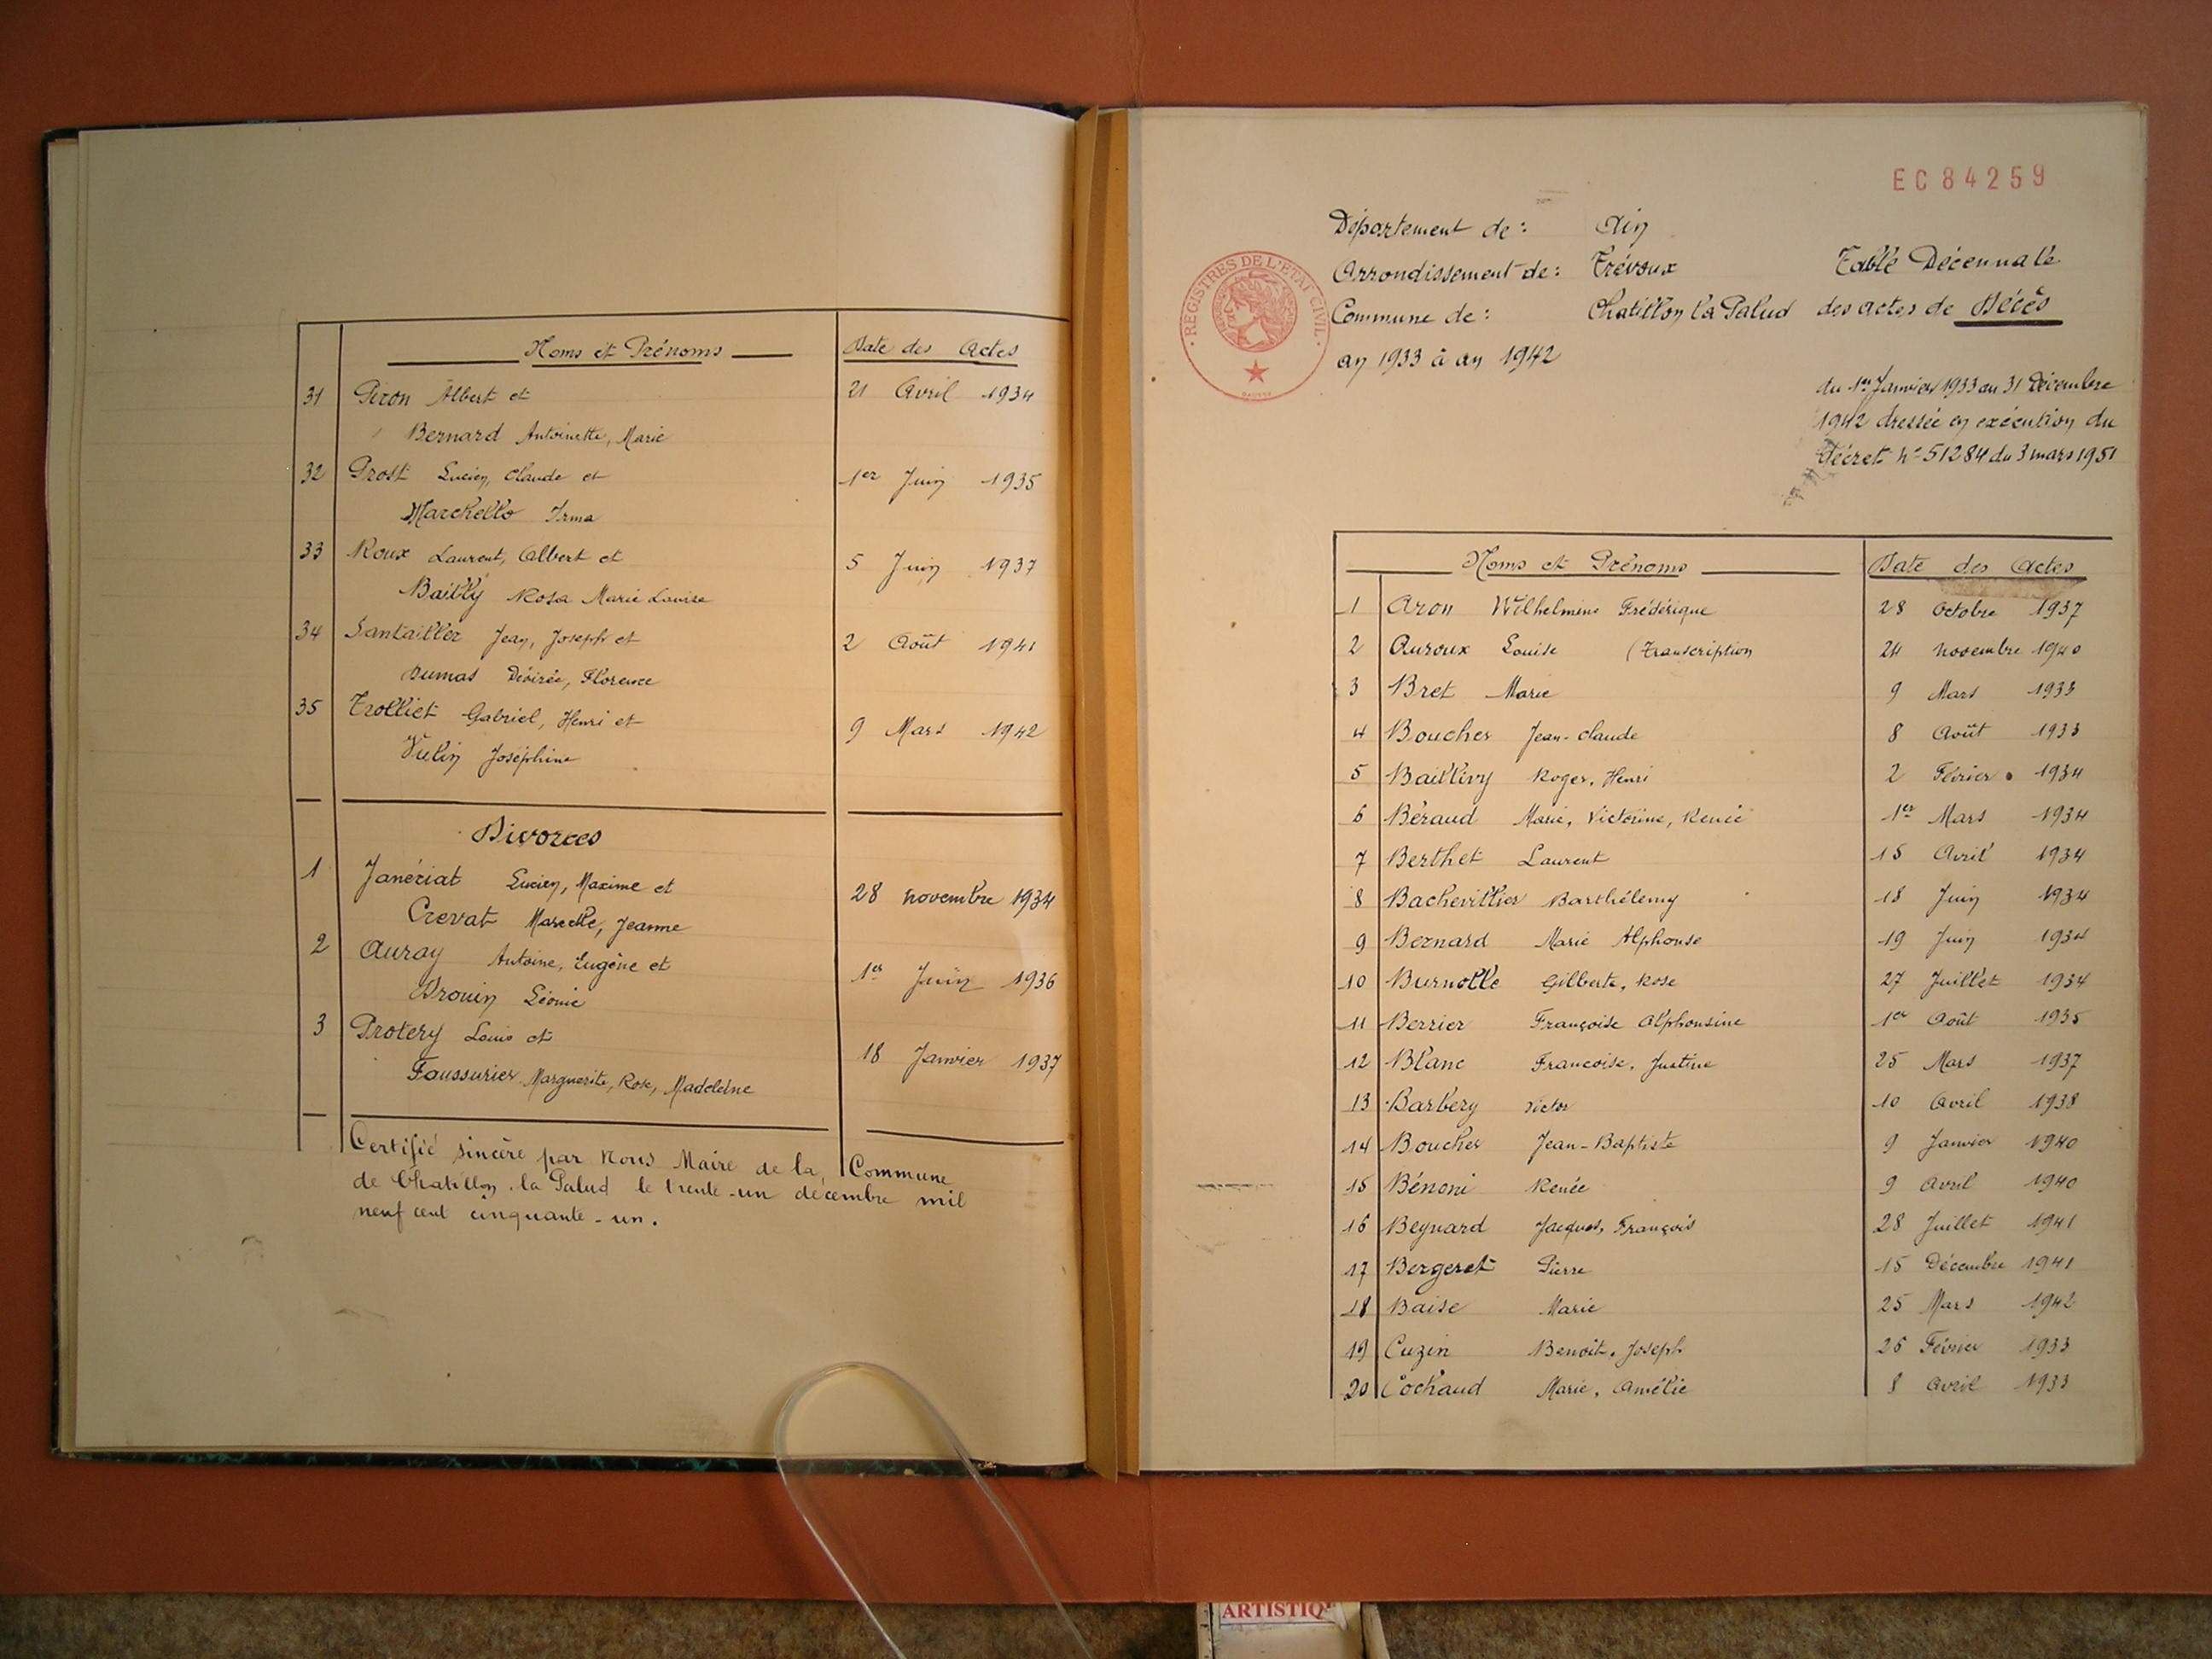 Noms et Prénoms Date des Actes
31 Piron Albert et 21 Avril 1934
Bernard Antoinette, Marie
32 Prost Lucien, Claude et 1er Juin 1935
Marchello Irma
33 Roux Laurent, Albert et 5 Juin 1937
Bailly Rosa Marie Louise
34 Santailler Jean, Joseph et 2 Août 1941
Dumas Désirée, Florence
35 Trolliet Gabriel, Henri et 9 Mars 1942
Vulin Joséphine
Divorces
1 Janériat Lucien, Maxime et 28 novembre 1934
Crevat Marcelle, Jeanne
2 Auray Antoine, Eugène et 1er Juin 1936
Drouin Léonie
3 Protery Louis et 18 Janvier 1937
Faussurier Marguerite, Rose, Madeleine
Certifié sincère par Nous Maire de la Commune
de Chatillon la Palud le trente-un décembre mil
neuf cent cinquante-un.
EC84259
REGISTRES DE L'ETAT CIVIL
Département de : Ain
Arrondissement de : Trévoux Table Décennale
Commune de : Chatillon la Palud des actes de Décès
an 1933 à an 1942
du 1er Janvier 1933 au 31 Décembre
1942 dressée en exécution du
Décret n° 51284 du 3 mars 1951
Noms et Prénoms Date des Actes
1 Aron Wilhelmine Frédérique 28 Octobre 1937
2 Auroux Louise (Transcription 24 novembre 1940
3 Bret Marie 9 Mars 1933
4 Boucher Jean-Claude 8 Août 1933
5 Baillivy Roger, Henri 2 Février 1934
6 Béraud Marie, Victorine, Renée 1er Mars 1934
7 Berthet Laurent 15 Avril 1934
8 Bachevillier Barthélemy 18 Juin 1934
9 Bernard Marie Alphonse 19 Juin 1934
10 Burnolle Gilberte, Rose 27 Juillet 1934
11 Berrier Françoise Alphonsine 1er Août 1935
12 Blanc Francoise, Justine 25 Mars 1937
13 Barbery Victor 10 Avril 1938
14 Boucher Jean-Baptiste 9 Janvier 1940
15 Bénoni Renée 9 Avril 1940
16 Beynard Jacques, François 28 Juillet 1941
17 Bergeret Pierre 15 Décembre 1941
18 Baise Marie 25 Mars 1942
19 Cuzin Benoit, Joseph 26 Février 1933
20 Cochaud Marie, Amélie 8 Avril 1933